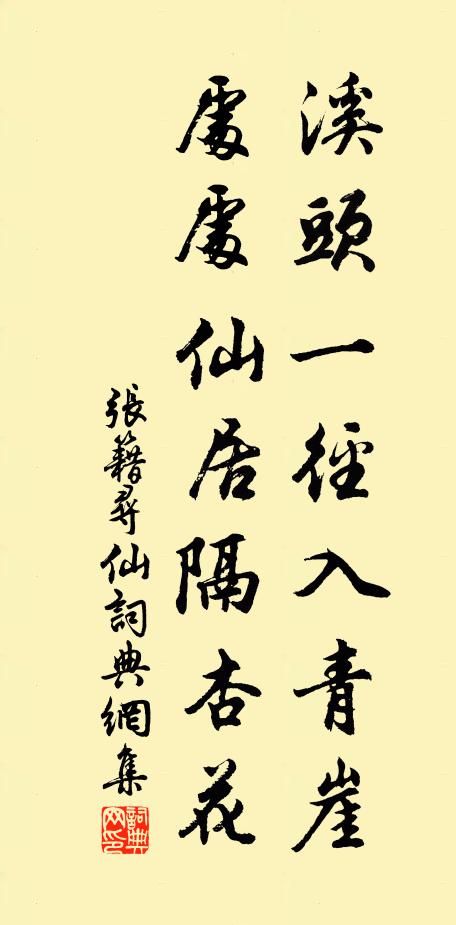 溪頭一徑入青崖
處處仙居隔杏花
張籍尋仙詞典網集
詞典網印